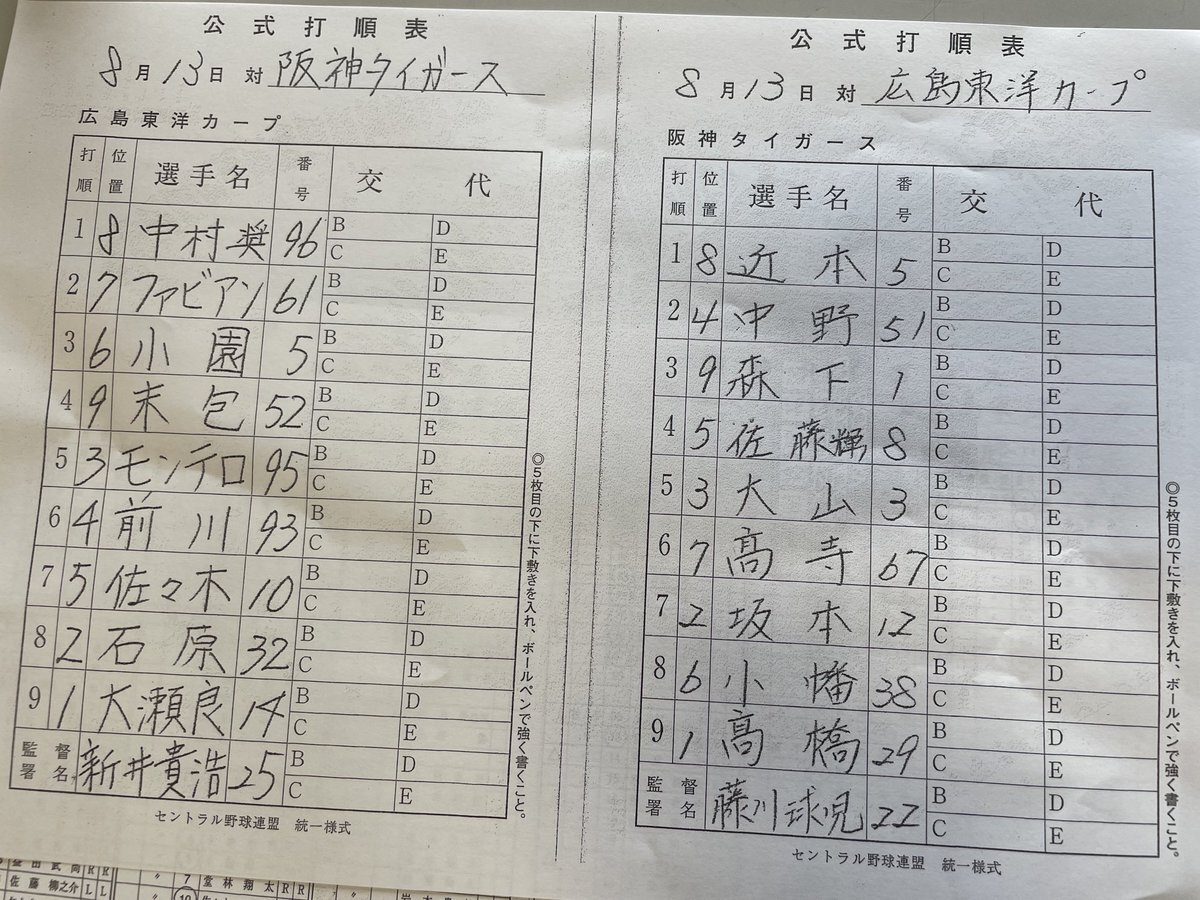 公式打順表
8月13日 対 阪神タイガース
広島東洋カープ
打順 位置 選手名 番号 交代
1 8 中村奨 96 B D C E
2 7 ファビアン 61 B D C E
3 6 小園 5 B D C E
4 9 末包 52 B D C E
5 3 モンテロ 95 B D C E
6 4 前川 93 B D C E
7 5 佐々木 10 B D C E
8 2 石原 32 B D C E
9 1 大瀬良 14 B D C E
監督署名 新井貴浩 25 B D C E
セントラル野球連盟 統一様式
◎5枚目の下に下敷きを入れ、ボールペンで強く書くこと。
公式打順表
8月13日 対 広島東洋カープ
阪神タイガース
打順 位置 選手名 番号 交代
1 8 近本 5 B D C E
2 4 中野 51 B D C E
3 9 森下 1 B D C E
4 5 佐藤輝 8 B D C E
5 3 大山 3 B D C E
6 7 髙寺 67 B D C E
7 2 坂本 12 B D C E
8 6 小幡 38 B D C E
9 1 髙橋 29 B D C E
監督署名 藤川球児 22 B D C E
セントラル野球連盟 統一様式
◎5枚目の下に下敷きを入れ、ボールペンで強く書くこと。
佐藤柳之介 L L 〃 7 堂林翔太 R R